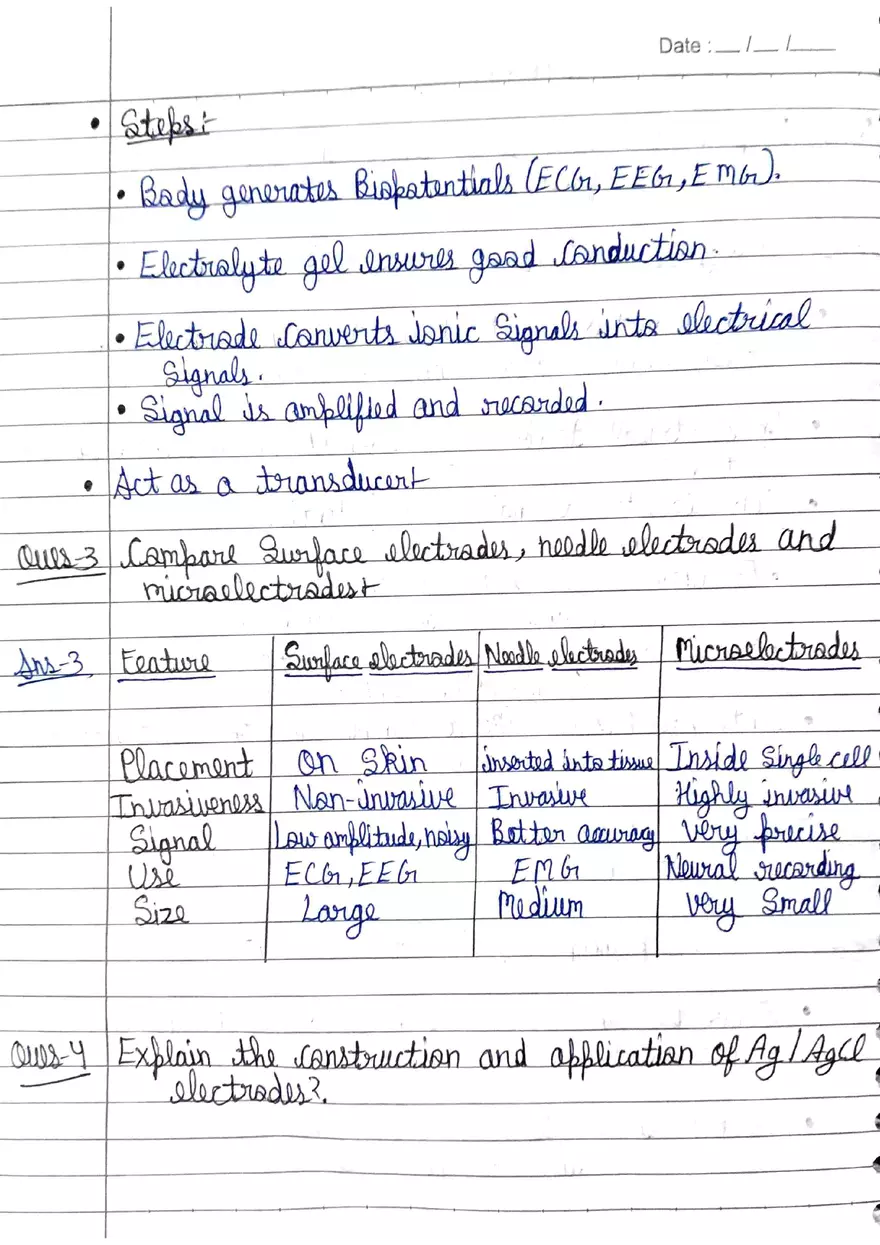 Date : __ /__ /____
• Steps:-
• Body generates Biopotentials (ECG, EEG, EMG).
• Electrolyte gel ensures good conduction.
• Electrode converts ionic signals into electrical
signals.
• Signal is amplified and recorded.
• Act as a transducer:-
Ques-3 Compare Surface electrodes, needle electrodes and
microelectrodes:-
Ans-3 Feature Surface electrodes Needle electrodes Microelectrodes
Placement On Skin inserted into tissue Inside Single cell
Invasiveness Non-invasive Invasive Highly invasive
Signal Low amplitude, noisy Better accuracy very precise
Use ECG, EEG EMG Neural recording
Size Large Medium very Small
Ques-4 Explain the construction and application of Ag/AgCl
electrodes?.